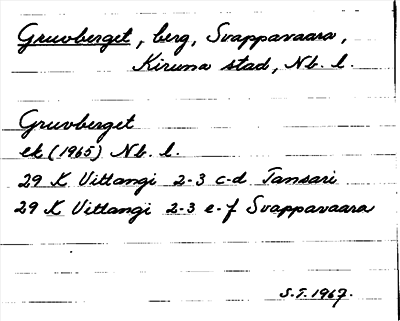 Gruvberget, berg, Svappavaara,
Kiruna stad, Nb. l.
Gruvberget
ek (1965) Nb. l.
29 K Vittangi 2-3 c-d Tansari
29 K Vittangi 2-3 e-f Svappavaara
S.T. 1967.